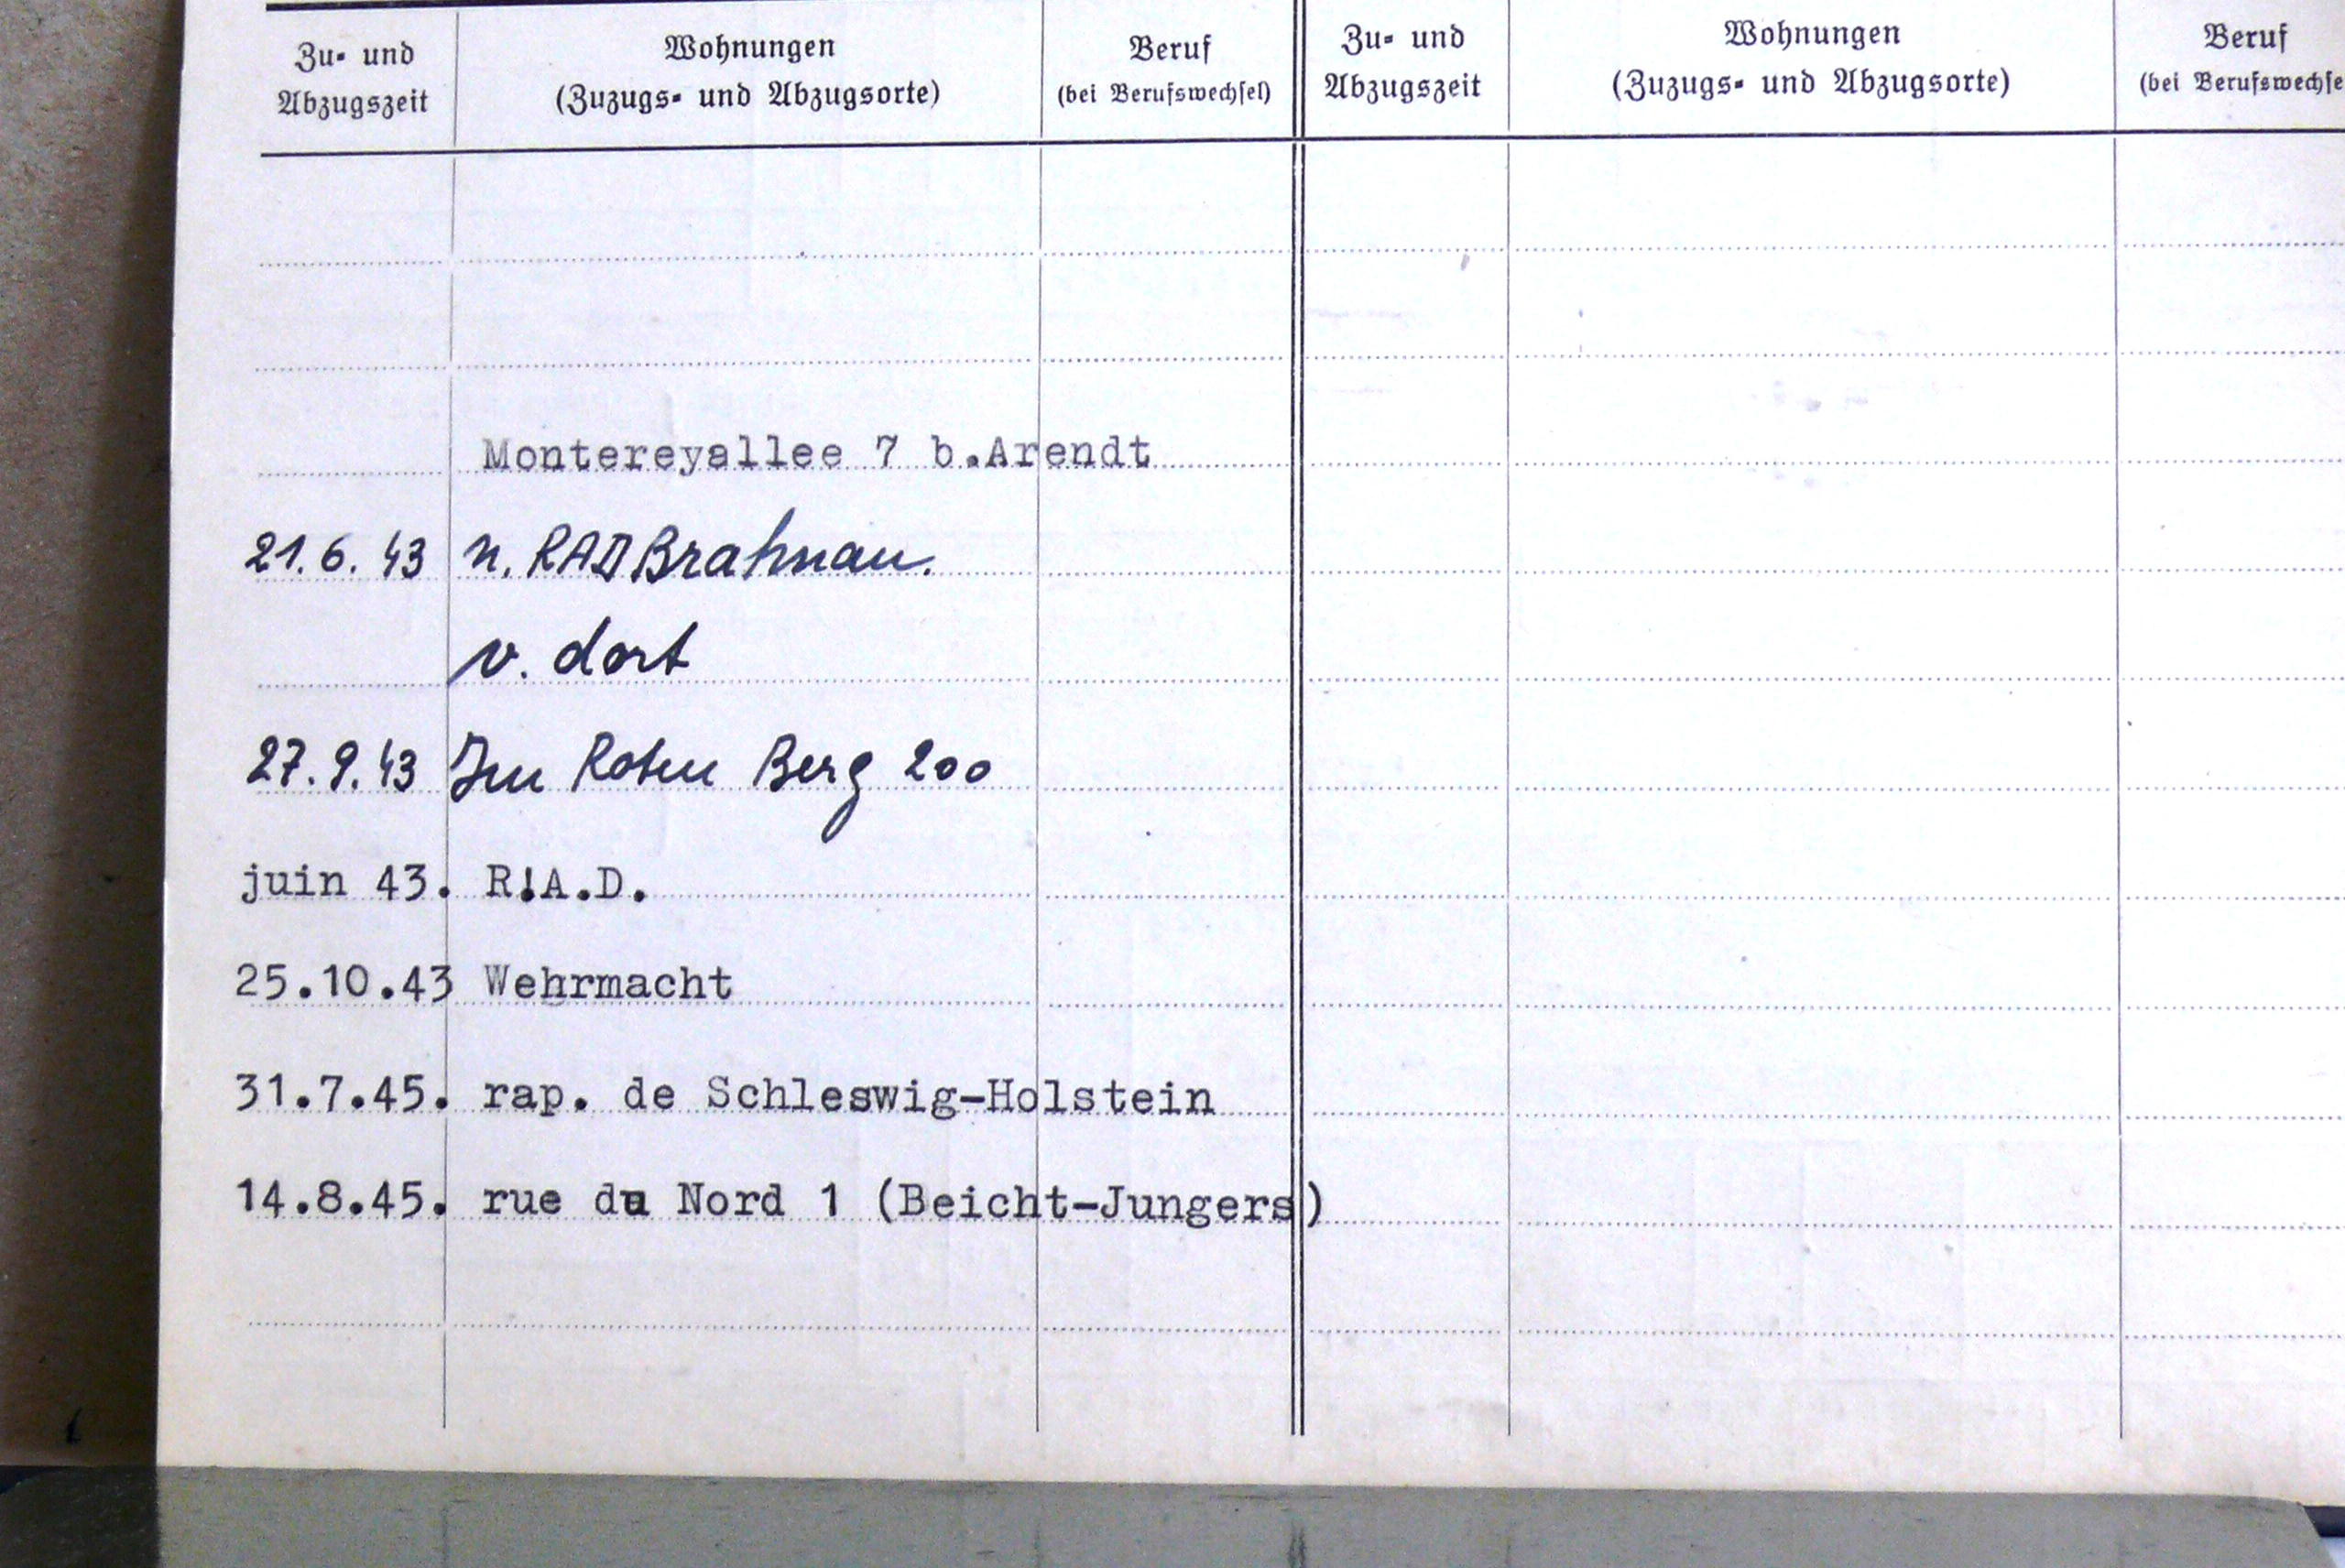 Zu- und Abzugszeit
Wohnungen
(Zuzugs- und Abzugsorte)
Beruf
(bei Berufswechsel)
Zu- und Abzugszeit
Wohnungen
(Zuzugs- und Abzugsorte)
Beruf
(bei Berufswechse
Montereyallee 7 b.Arendt
21.6.43 n. RAD Brahnau.
v. dort
27.9.43 Im Roten Berg 200
juin 43. R!A.D.
25.10.43 Wehrmacht
31.7.45. rap. de Schleswig-Holstein
14.8.45. rue du Nord 1 (Beicht-Jungers)